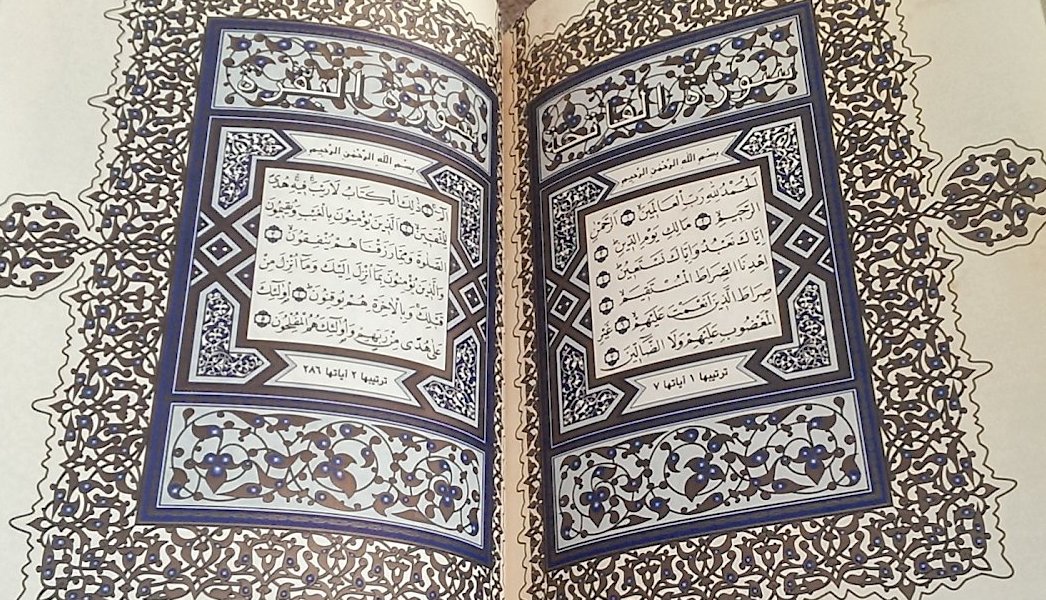 سورة الفاتحة
بسم الله الرحمن الرحيم
الحمد لله رب العالمين الرحمن
الرحيم مالك يوم الدين
إياك نعبد وإياك نستعين
اهدنا الصراط المستقيم
صراط الذين أنعمت عليهم غير
المغضوب عليهم ولا الضالين
ترتيبها ١ آياتها ٧
سورة البقرة
بسم الله الرحمن الرحيم
الم ذلك الكتاب لا ريب فيه هدى
للمتقين الذين يؤمنون بالغيب ويقيمون
الصلاة ومما رزقناهم ينفقون
والذين يؤمنون بما أنزل إليك وما أنزل من
قبلك وبالآخرة هم يوقنون أولئك
على هدى من ربهم وأولئك هم المفلحون
ترتيبها ٢ آياتها ٢٨٦